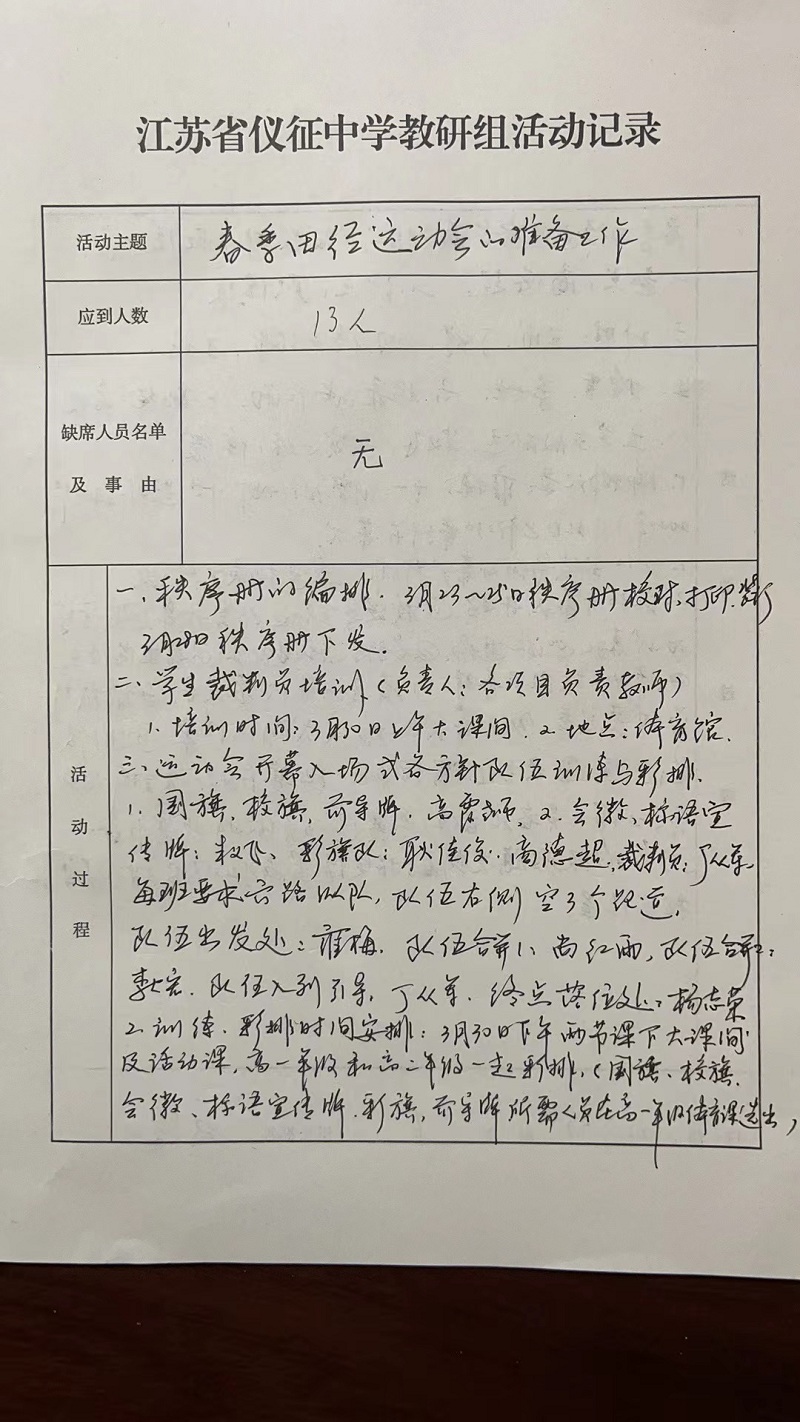 江苏省仪征中学教研组活动记录
活动主题
春季田径运动会的准备工作
应到人数
13人
缺席人员名单
及事由
无
活动过程
一、秩序册的编排. 3月23～25日秩序册校对、打印.
3月28日秩序册下发.
二、学生裁判员培训(负责人：各项目负责教师)
1.培训时间：3月30日上午大课间. 2.地点：体育馆.
三、运动会开幕入场式各方针队伍训练与彩排.
1.国旗、校旗、前导牌. 高 2.会徽、标语宣
传牌： 彩旗队：耿佳俊. 高德超. 裁判员：丁从军.
每班要求六路以队, 队伍右侧空3个跑道,
队伍出发处： 梅. 队伍合并1、尚红雨, 队伍合并2：
李 宏. 队伍入列引导, 丁从军. 终点落位处：杨志荣
2.训练、彩排时间安排：3月30日下午两节课下大课间
及活动课, 高一年级和高二年级一起彩排, (国旗、校旗、
会徽、标语宣传牌.彩旗, 前导牌所需人员在高一年级体育课选出,